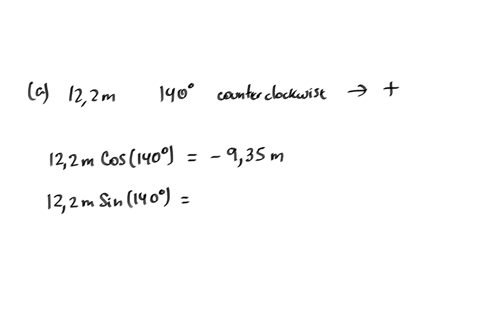 (a) 12,2m 140° counterclockwist → +
12,2m Cos(140°) = -9,35m
12,2m Sin(140°) =